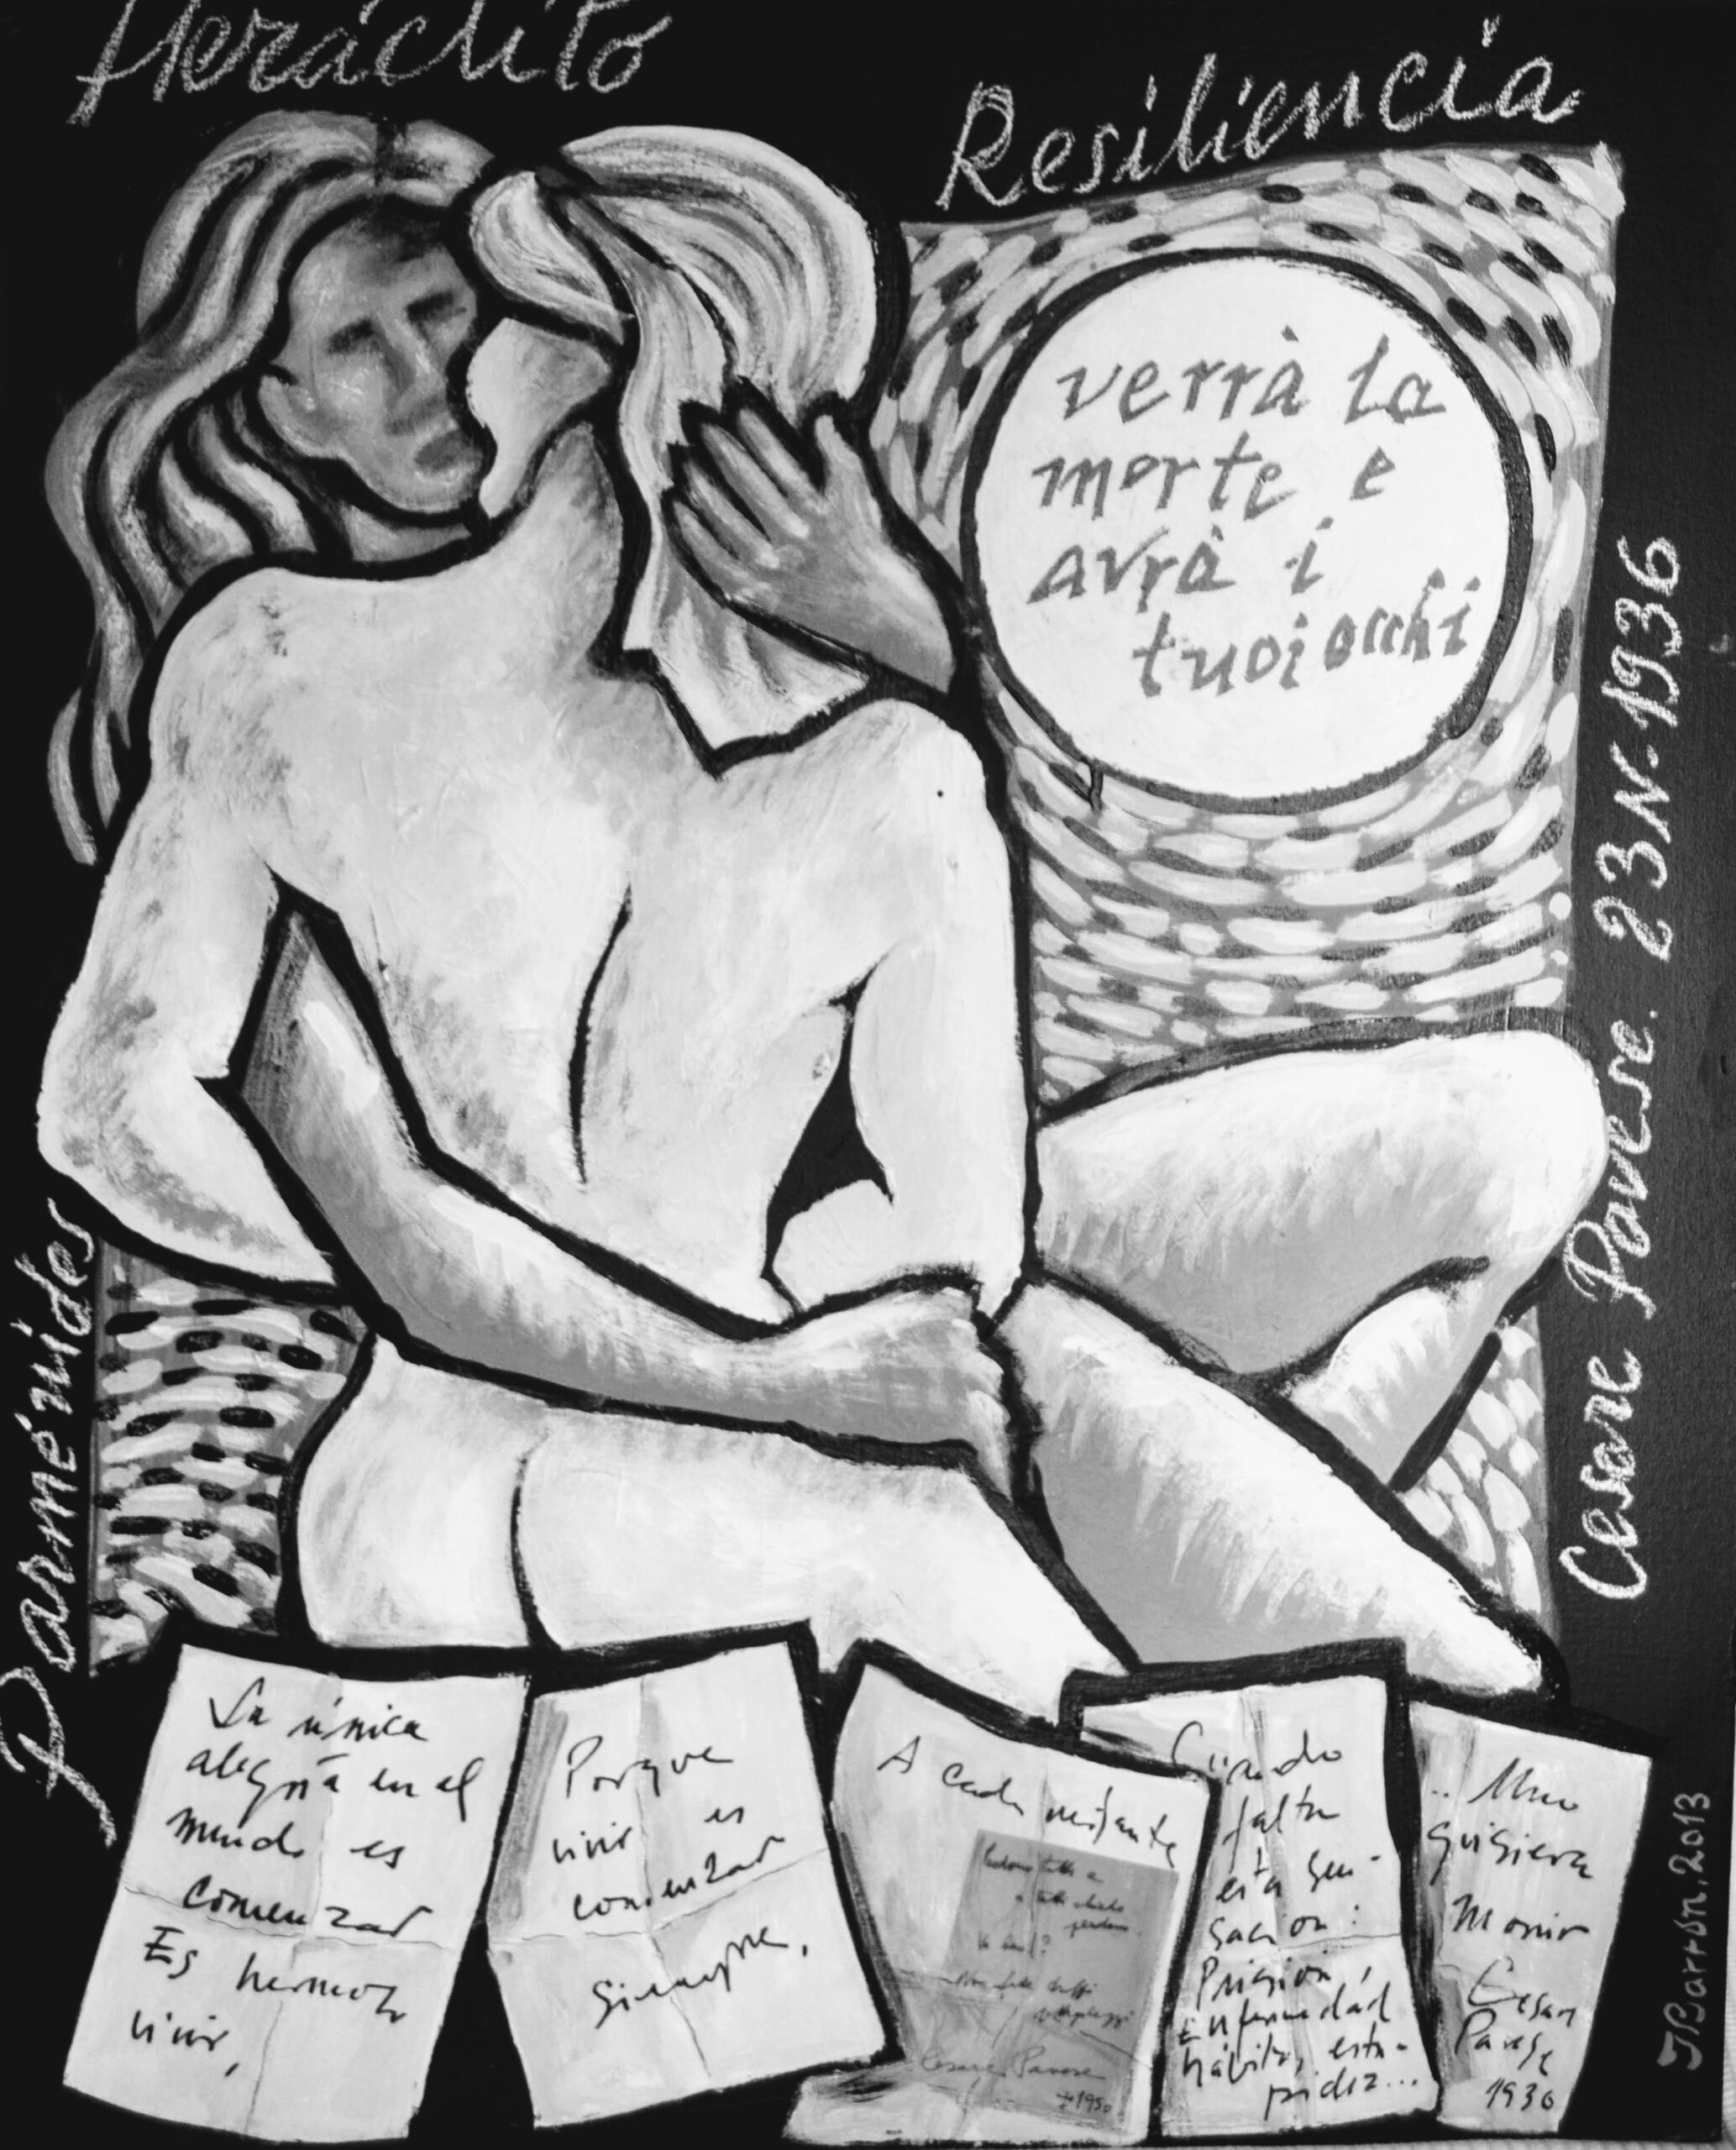 Heráclito
Resiliencia
verrà la
morte e
avrà i
tuoi occhi
Cesare Pavese. 23 N-1936
Parménides
La única
alegría en el
mundo es
comenzar
Es hermoso
vivir,
Porque
vivir es
comenzar
siempre,
A cada instante
Perdono tutti e
a tutti chiedo
perdono.
Va bene?
Non fate troppi
pettegolezzi
Cesare Pavese
1950
Cuando
falta
esta sen-
sación:
Prisión,
Enfermedad
hábito, estu-
pidez...
.. Uno
quisiera
Morir
Cesar
Pavese
1930
JBarrón. 2013